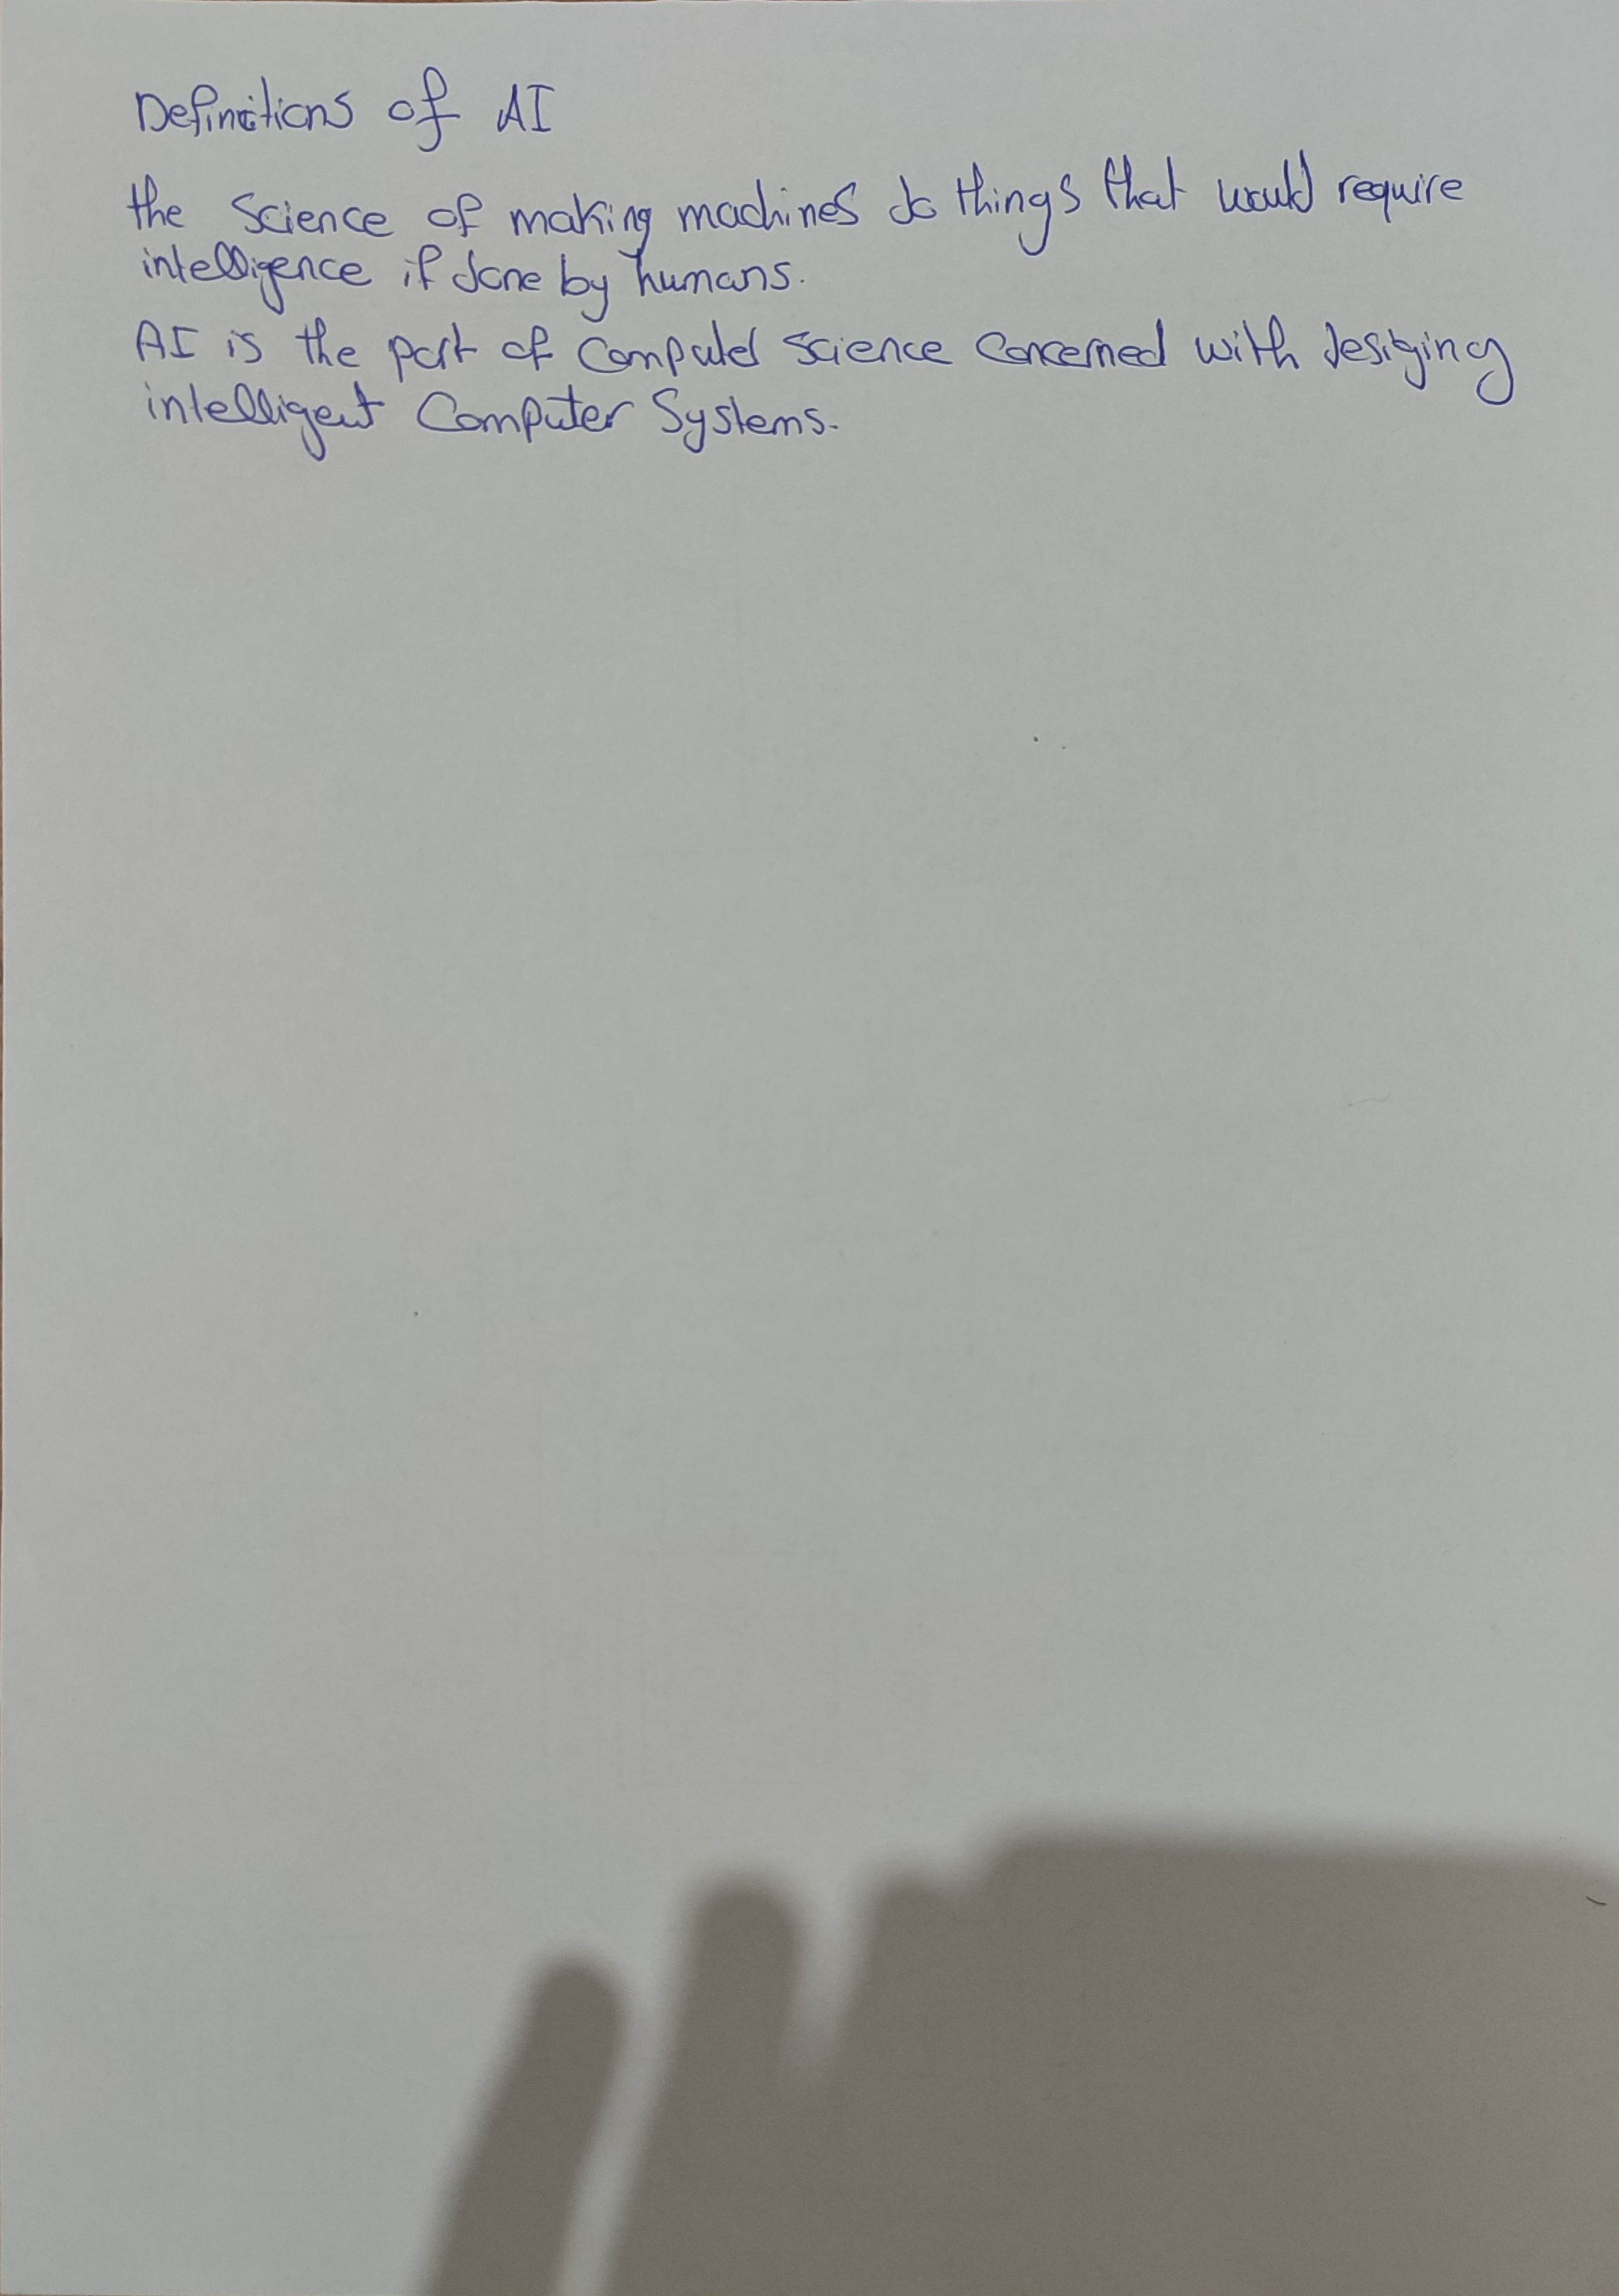 Definitions of AI
the Science of making machines do things that would require
intelligence if done by humans.
AI is the part of Computer science concerned with desiging
intelligent Computer Systems.